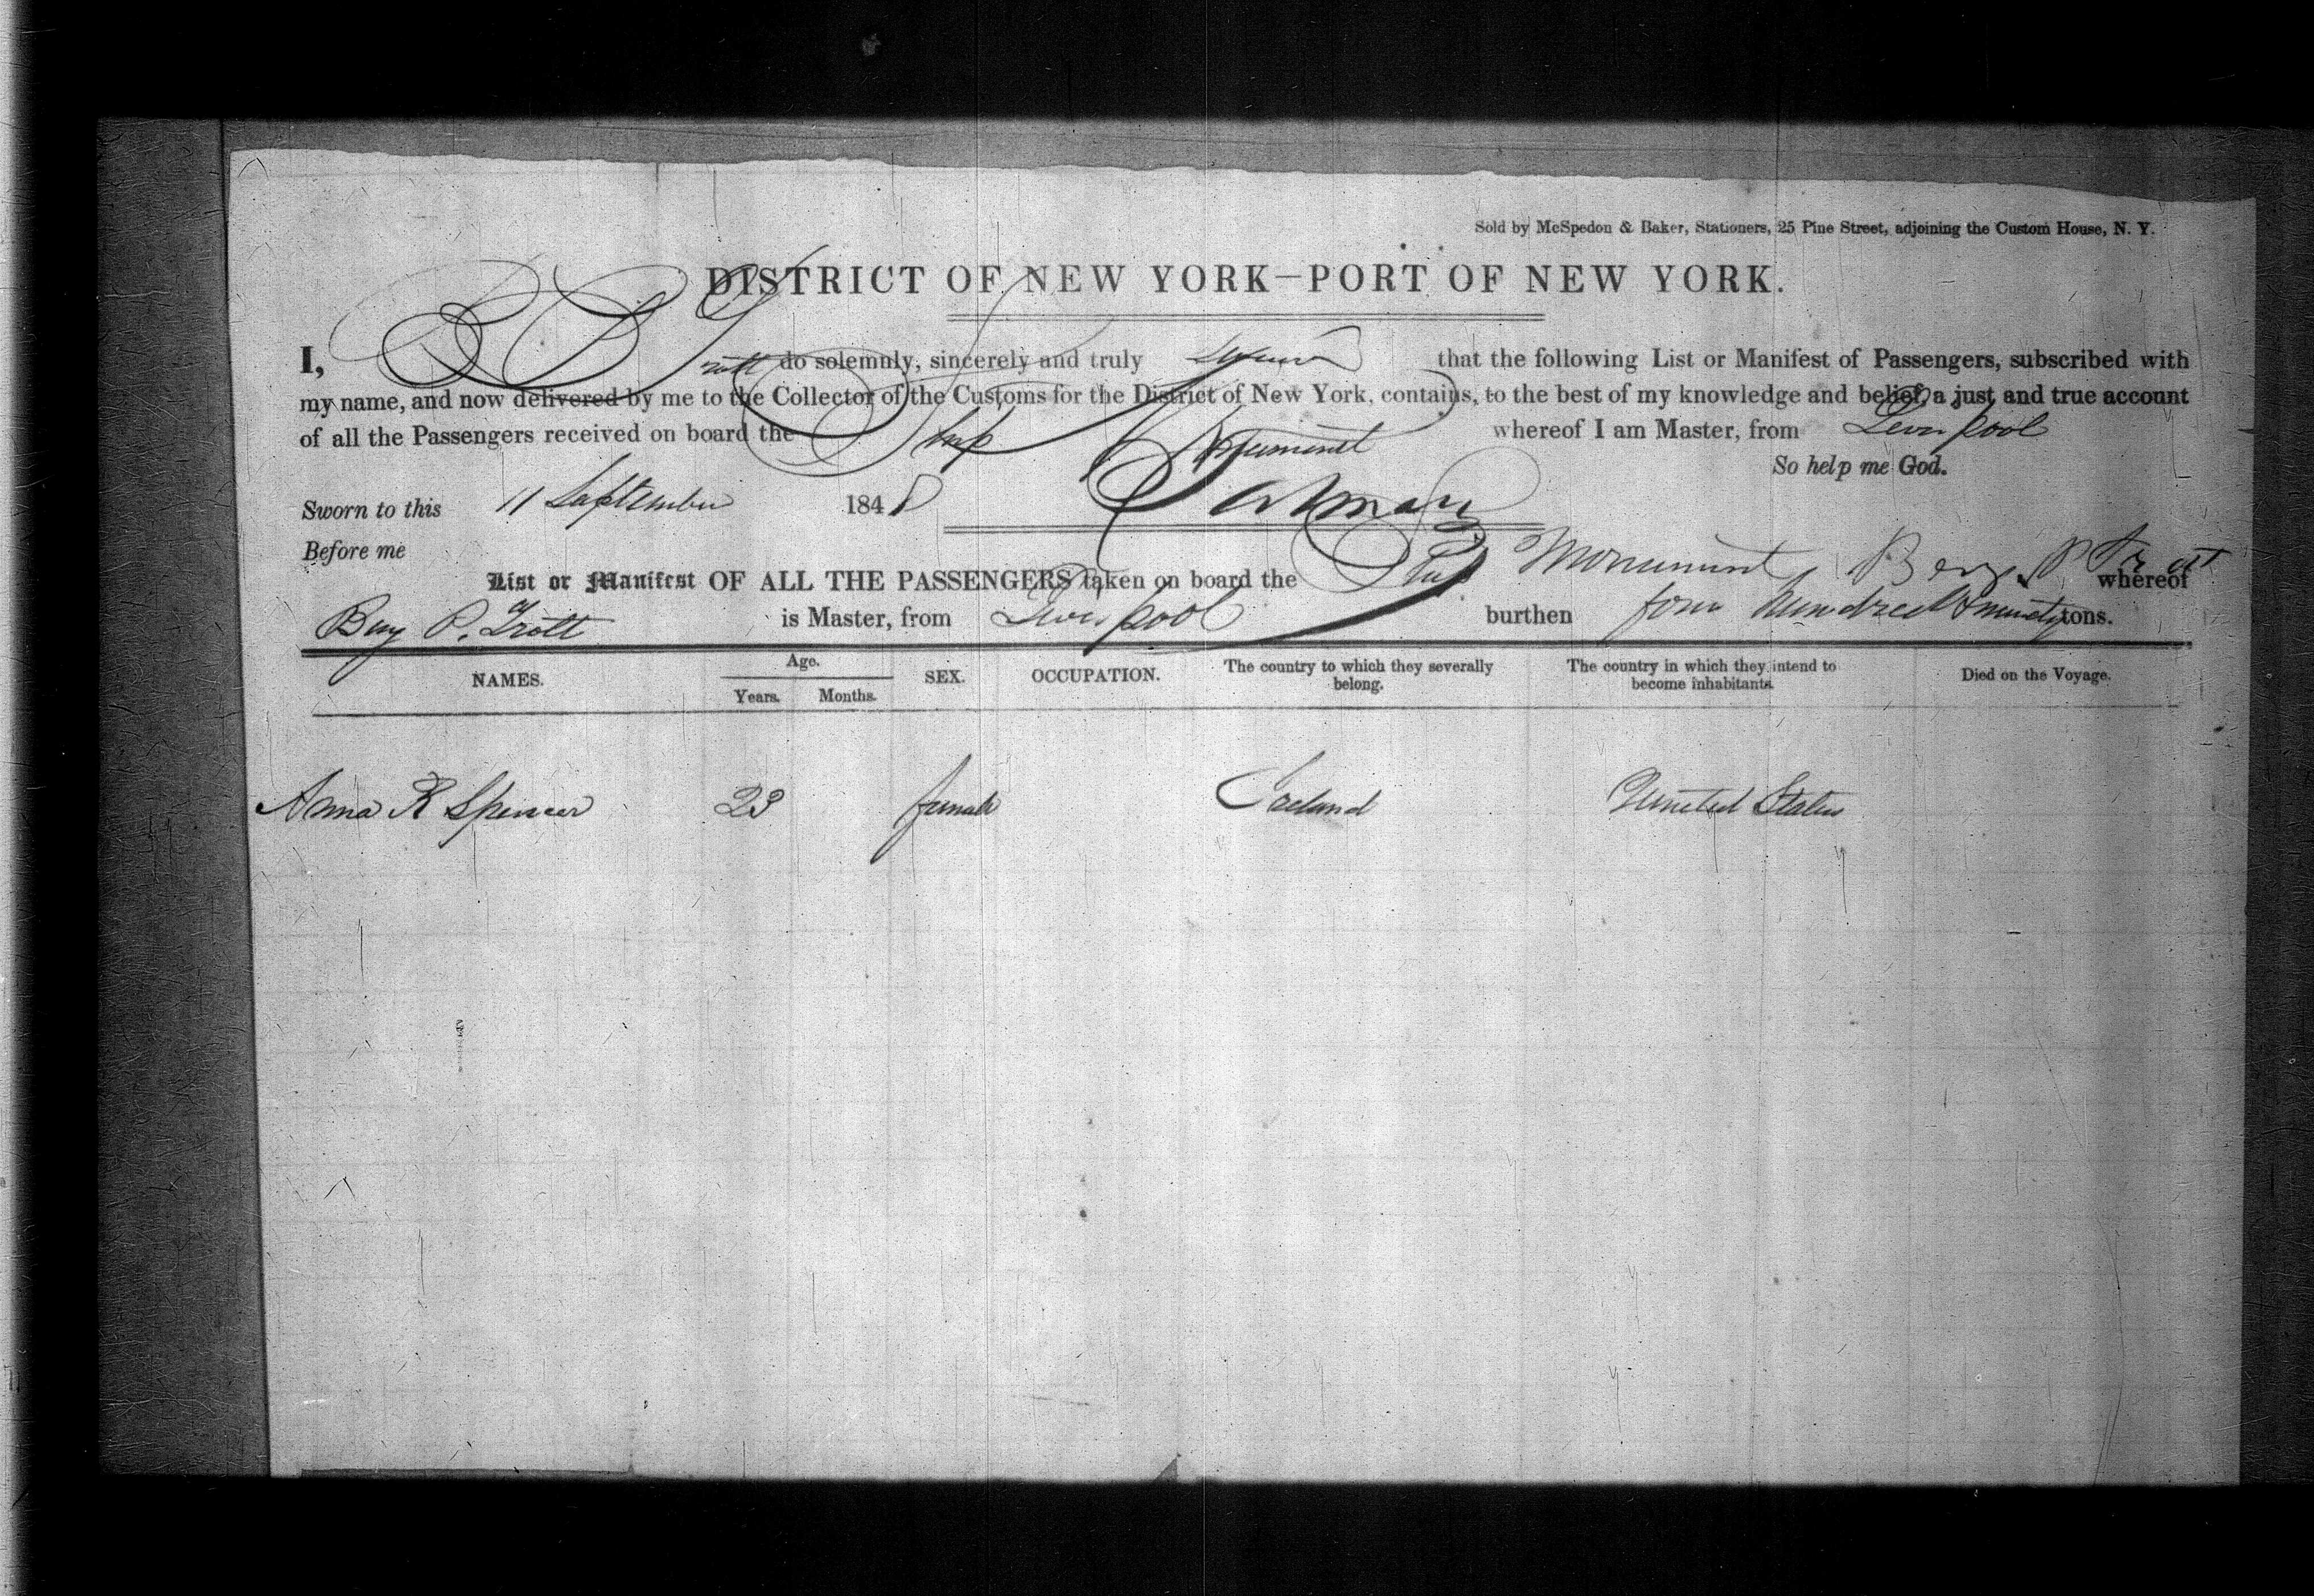 Sold by McSpedon & Baker, Stationers, 25 Pine Street, adjoining the Custom House, N. Y.
DISTRICT OF NEW YORK—PORT OF NEW YORK.
I, B P Trott do solemnly, sincerely and truly swear that the following List or Manifest of Passengers, subscribed with
my name, and now delivered by me to the Collector of the Customs for the District of New York, contains, to the best of my knowledge and belief, a just and true account
of all the Passengers received on board the Ship Monument whereof I am Master, from Liverpool
So help me God.
Sworn to this 11 September 1848
Before me
List or Manifest OF ALL THE PASSENGERS taken on board the Ship Monument Benj. P Trott whereof
Benj P. Trott is Master, from Liverpool burthen four hundred & ninety tons.
NAMES. Age. SEX. OCCUPATION. The country to which they severally belong. The country in which they intend to become inhabitants. Died on the Voyage.
Years. Months.
Anna R Spencer 23 female Ireland United States